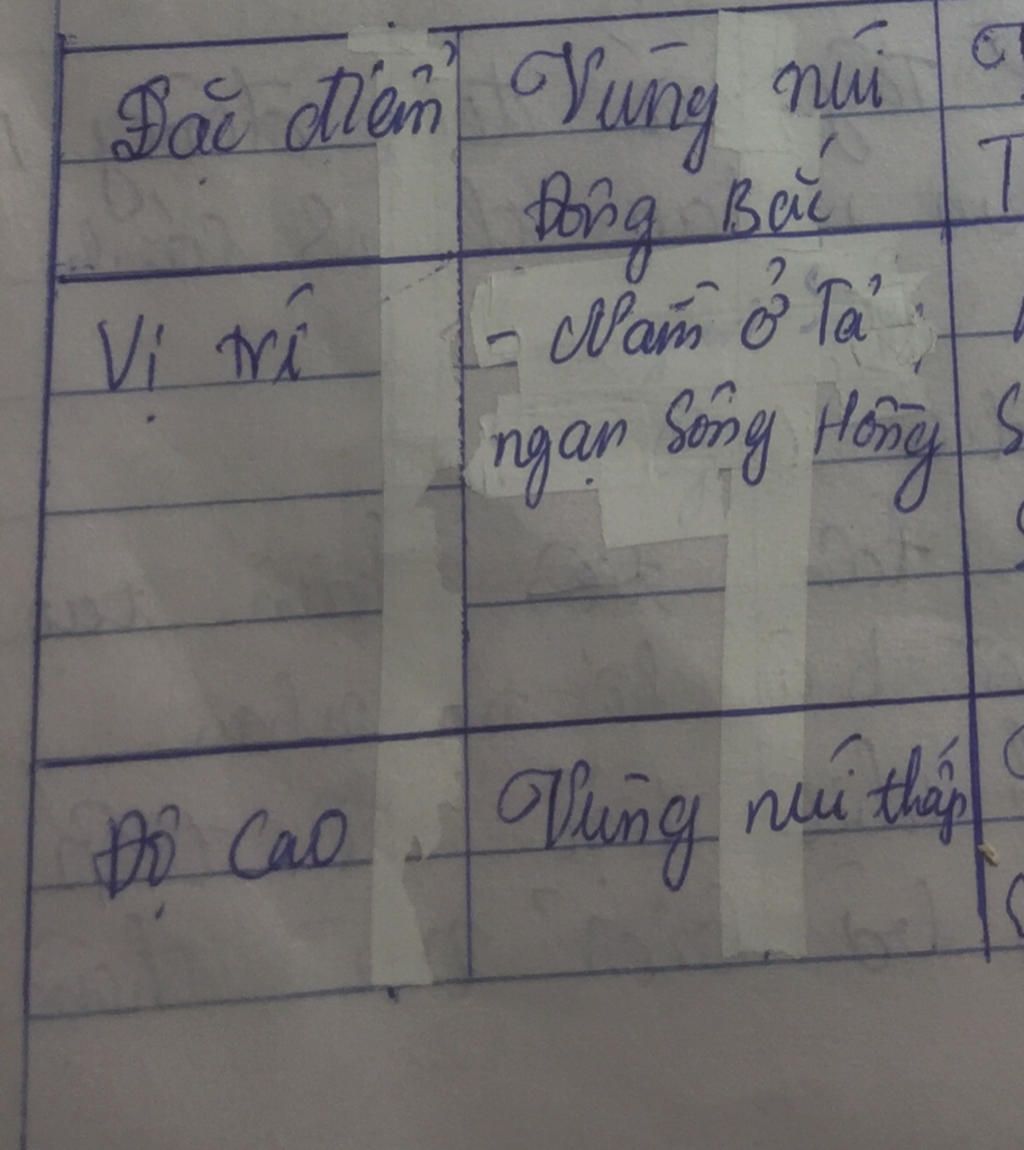 Đặc điểm
Vùng núi
Đông Bắc
Vị trí
- Nằm ở Tả
ngạn Sông Hồng
Độ Cao
Vùng núi thấp